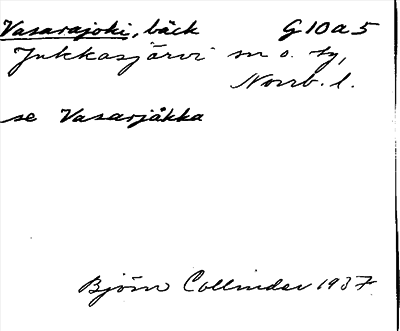 Vasarajoki, bäck G10a5
Jukkasjärvi sn o. tg,
Norrb. l.
se Vasarjåkka
Björn Collinder 1937